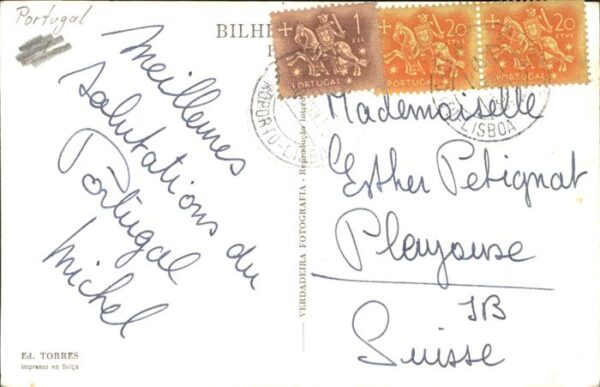 Portugal
BILHE
P
1
ESC
PORTUGAL
20
CTVS
PORTUGAL
20
CTVS
PORTUGAL
AEROPORTO-LI
LISBOA
Meilleures
salutations du
Portugal
Michel
Mademoiselle
Esther Petignat
Pleujouse
JB
Suisse
VERDADEIRA FOTOGRAFIA - Reprodução interd
Ed. TORRES
Impresso na Suíça